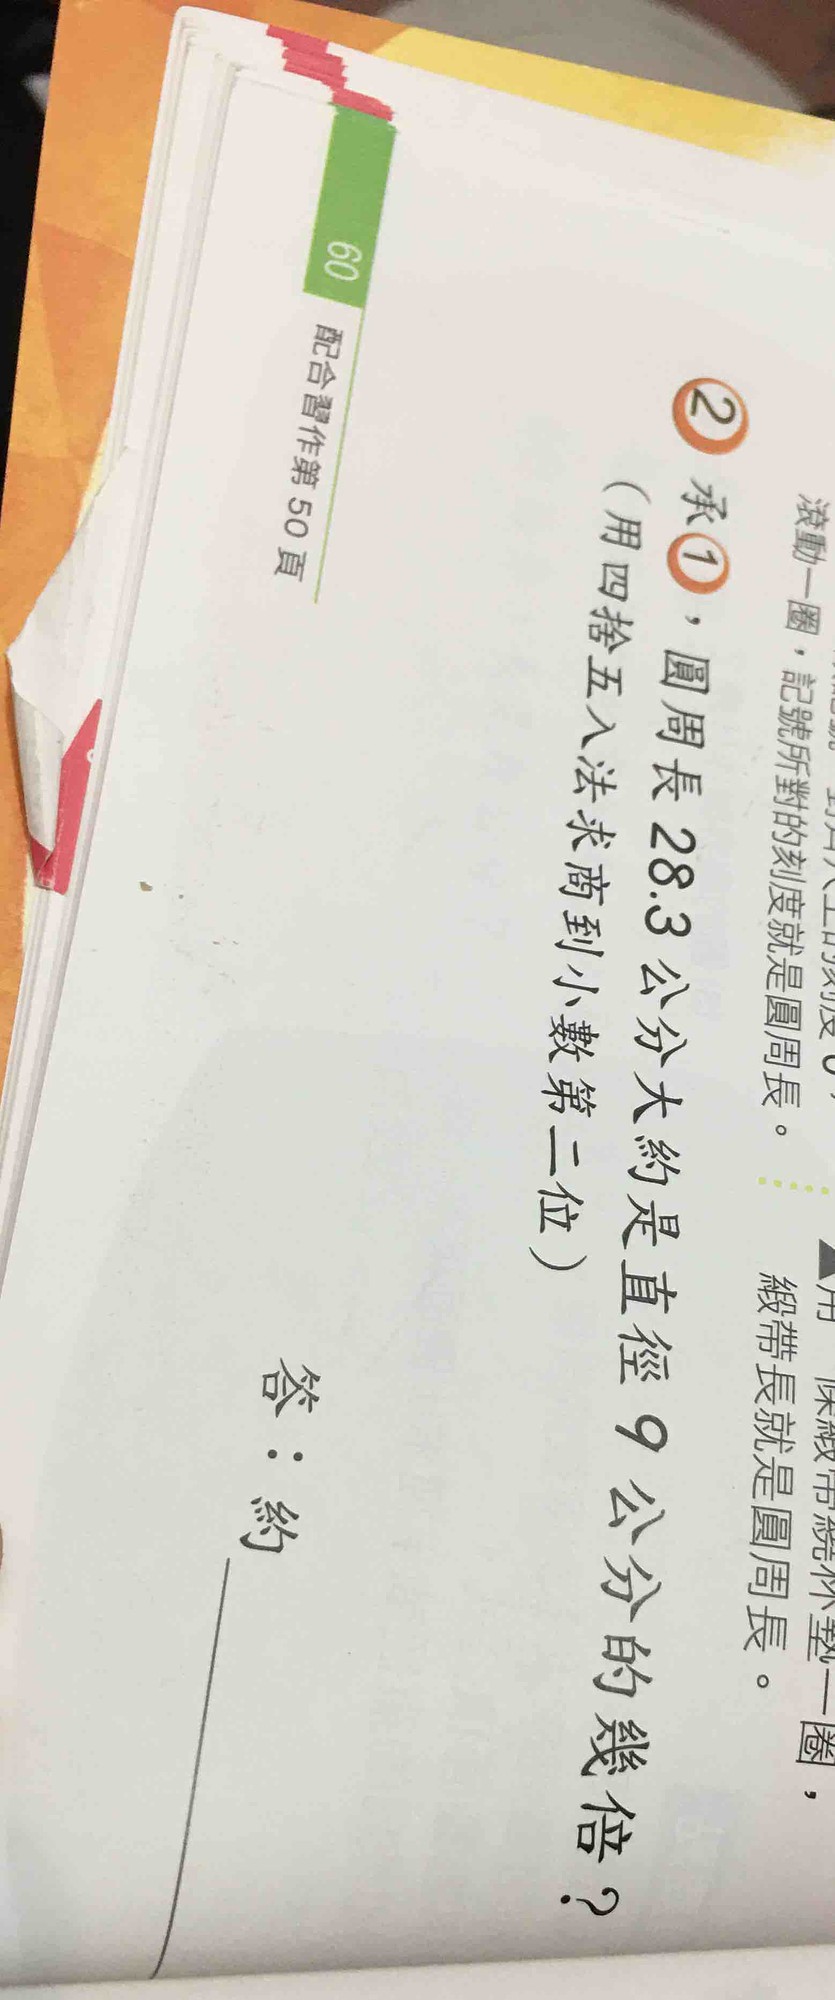 滾動一圈，記號所對的刻度就是圓周長。
緞帶長就是圓周長。
② 承①，圓周長 28.3 公分大約是直徑 9 公分的幾倍？
（用四捨五入法求商到小數第二位）
答：約
60 配合習作第 50 頁